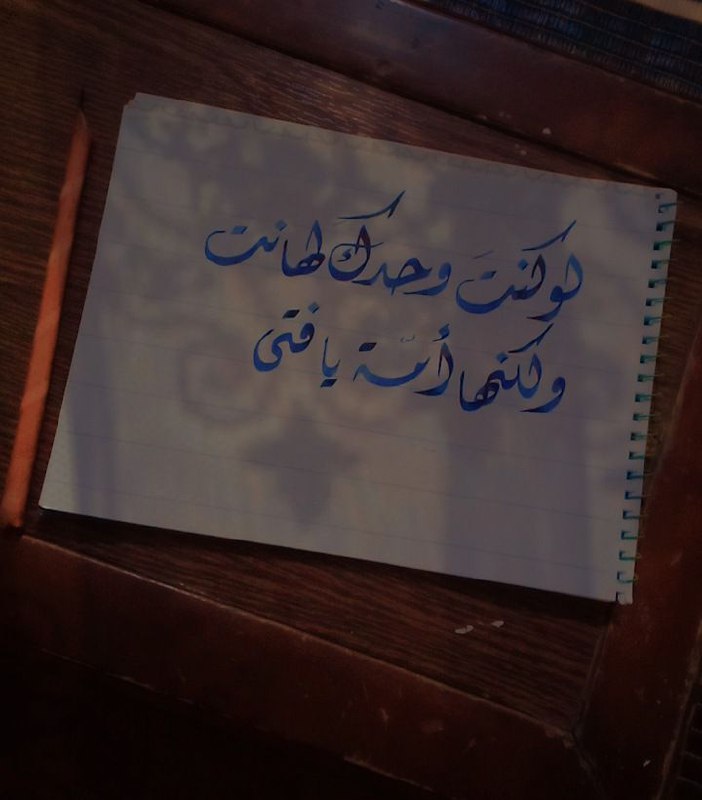 لو كنتَ وحدك لهانت
ولكنها أمّة يا فتى